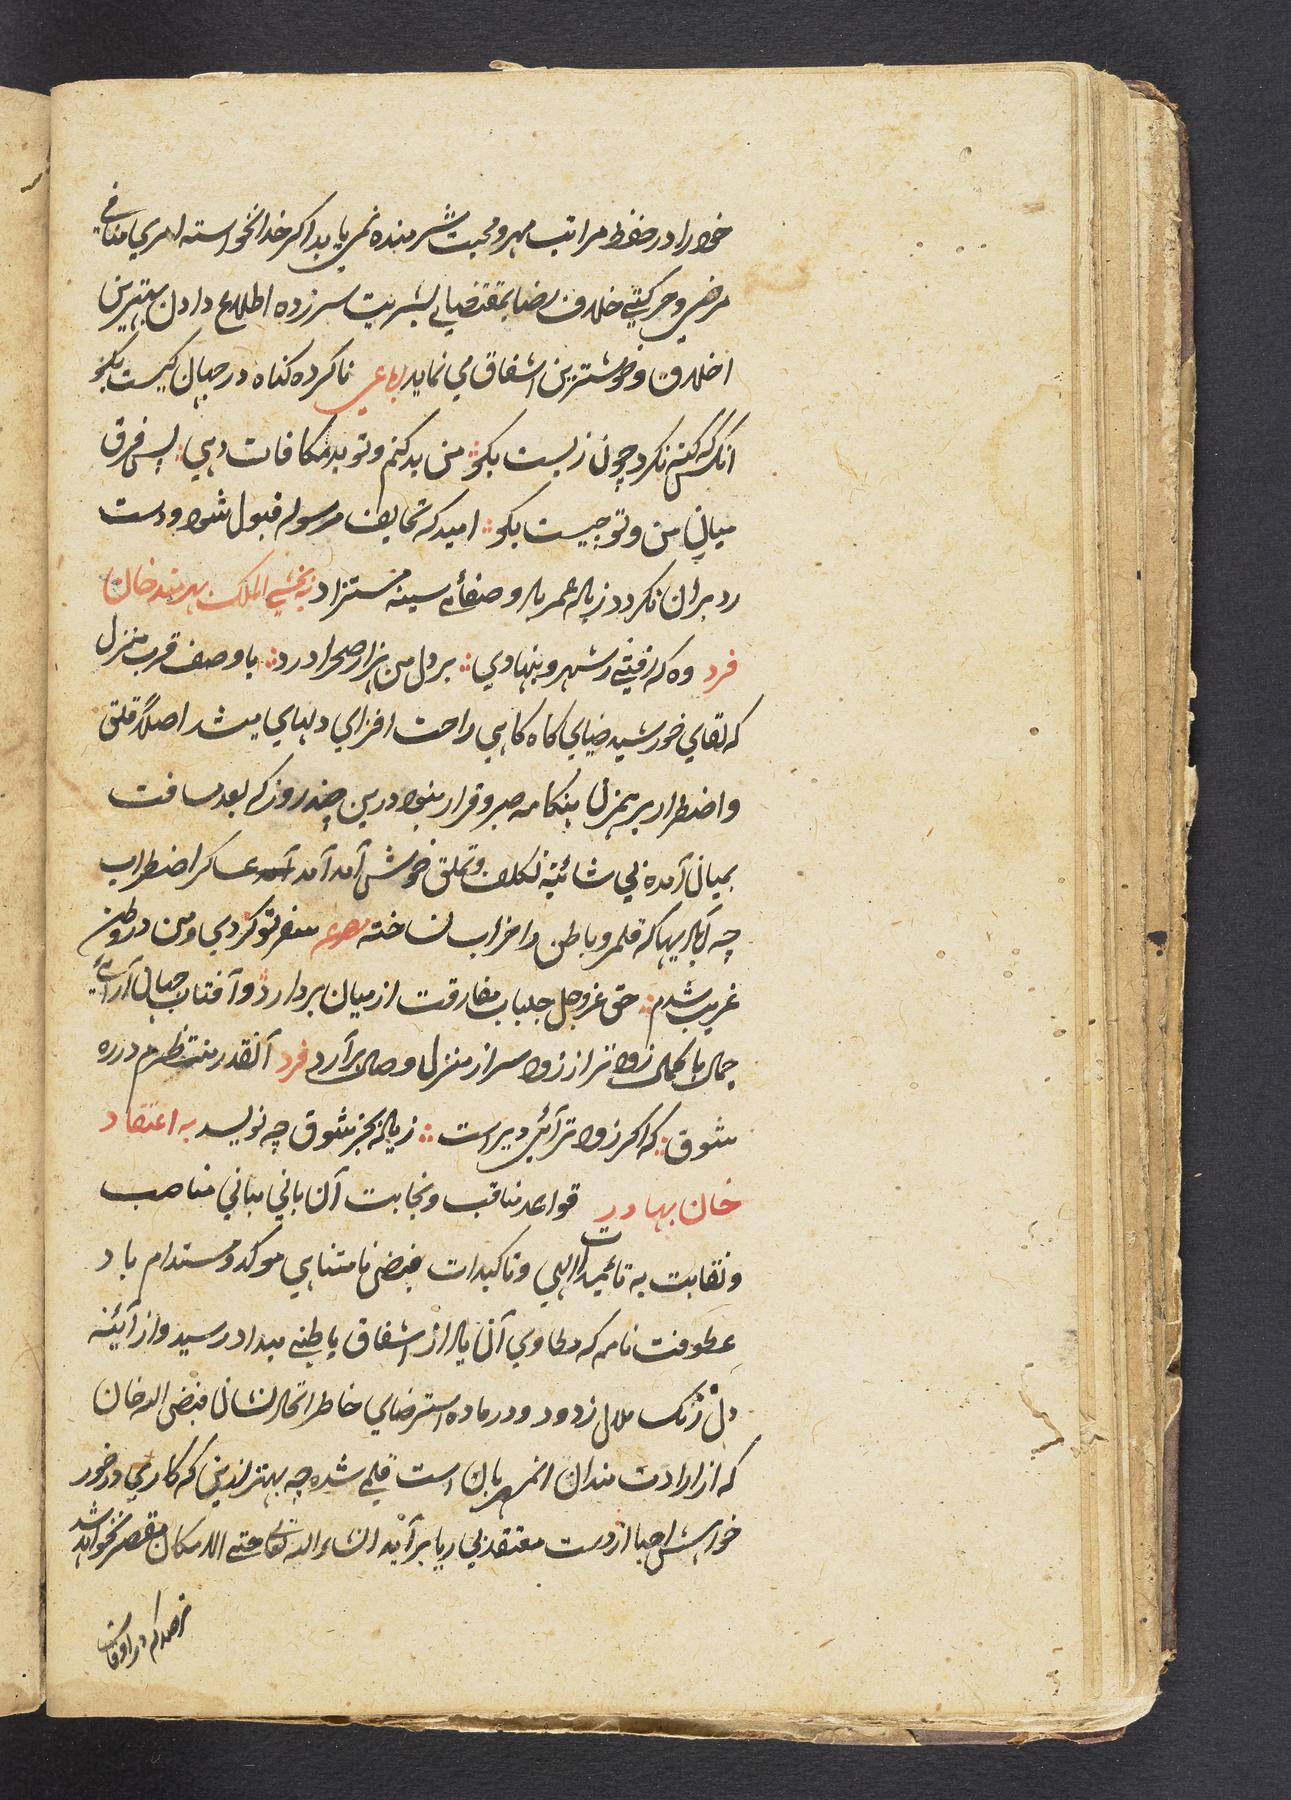 خود را در حفظ مراتب مهر و محبت شرمنده نمي يابد اكر خدانخواسته امري منافي
مرضي و حركتي خلاف رضا بمقتضاي بشريت سرزده اطلاع دادن بهترين
اخلاق و خوشترين اشفاق مي نمايد رباعي ناكرده كناه در جهان كيست بكو
انكس كه كنه نكرد چون زيست بكو من بد كنم و تو بد مكافات دهي پس فرق
ميان من و تو چيست بكو اميد كه تحايف مرسوله قبول شود و دست
رد بران نكردد زياده عمر باد و صفائي سينه مستزاد به بخشي الملك بهرمند خان
فرد وه كه رفتي ز شهر و بنهادي بر دل من هزار صحرا درد با وصف قرب منزل
كه لقاي خورشيد ضياي كاه كاهي راحت افزاي دلهاي ميشد اصلا قلق
و اضطرار برهمزن هنكامه صبر و قرار نبود درين چند روز كه بعد مسافت
بميان آمده بي شائبه تكلف و تملق خوش آمد آمد آمد عساكر اضطراب
چه آباديها كه قلمرو باطن را خراب نساخته مصرع سفر تو كردي و من در وطن
غريب شدم حق عز و جل جلباب مفارقت از ميان بردارد و آفتاب جهان آراي
جمال با كمال زود تر از زود سر از منزل وصال برآرد فرد آنقدر منتظرم در ره
شوق كه اكر زود تر آئي دير است زياده بجز شوق چه نويسد به اعتقاد
خان بهادر قواعد مناقب و نجابت آن باني مباني مناصب
و نقابت به تائيدات الهي و تاكيدات فيض نامتناهي موكد و مستدام باد
عطوفت نامه كه مطاوي آن ياد از اشفاق باطني ميداد رسيد و از آئينه
دل زنك ملال زدود و در ماده استرضاي خاطر اتحاد نشان فيض الله خان
كه از ارادت مندان انمهربان است قلمي شده چه بهتر ازين كه كاري در خور
خواهش احبا از دست معتقد بي ريا برآيد انشاء الله تعالي حتي الامكان مقصر نخواهد شد